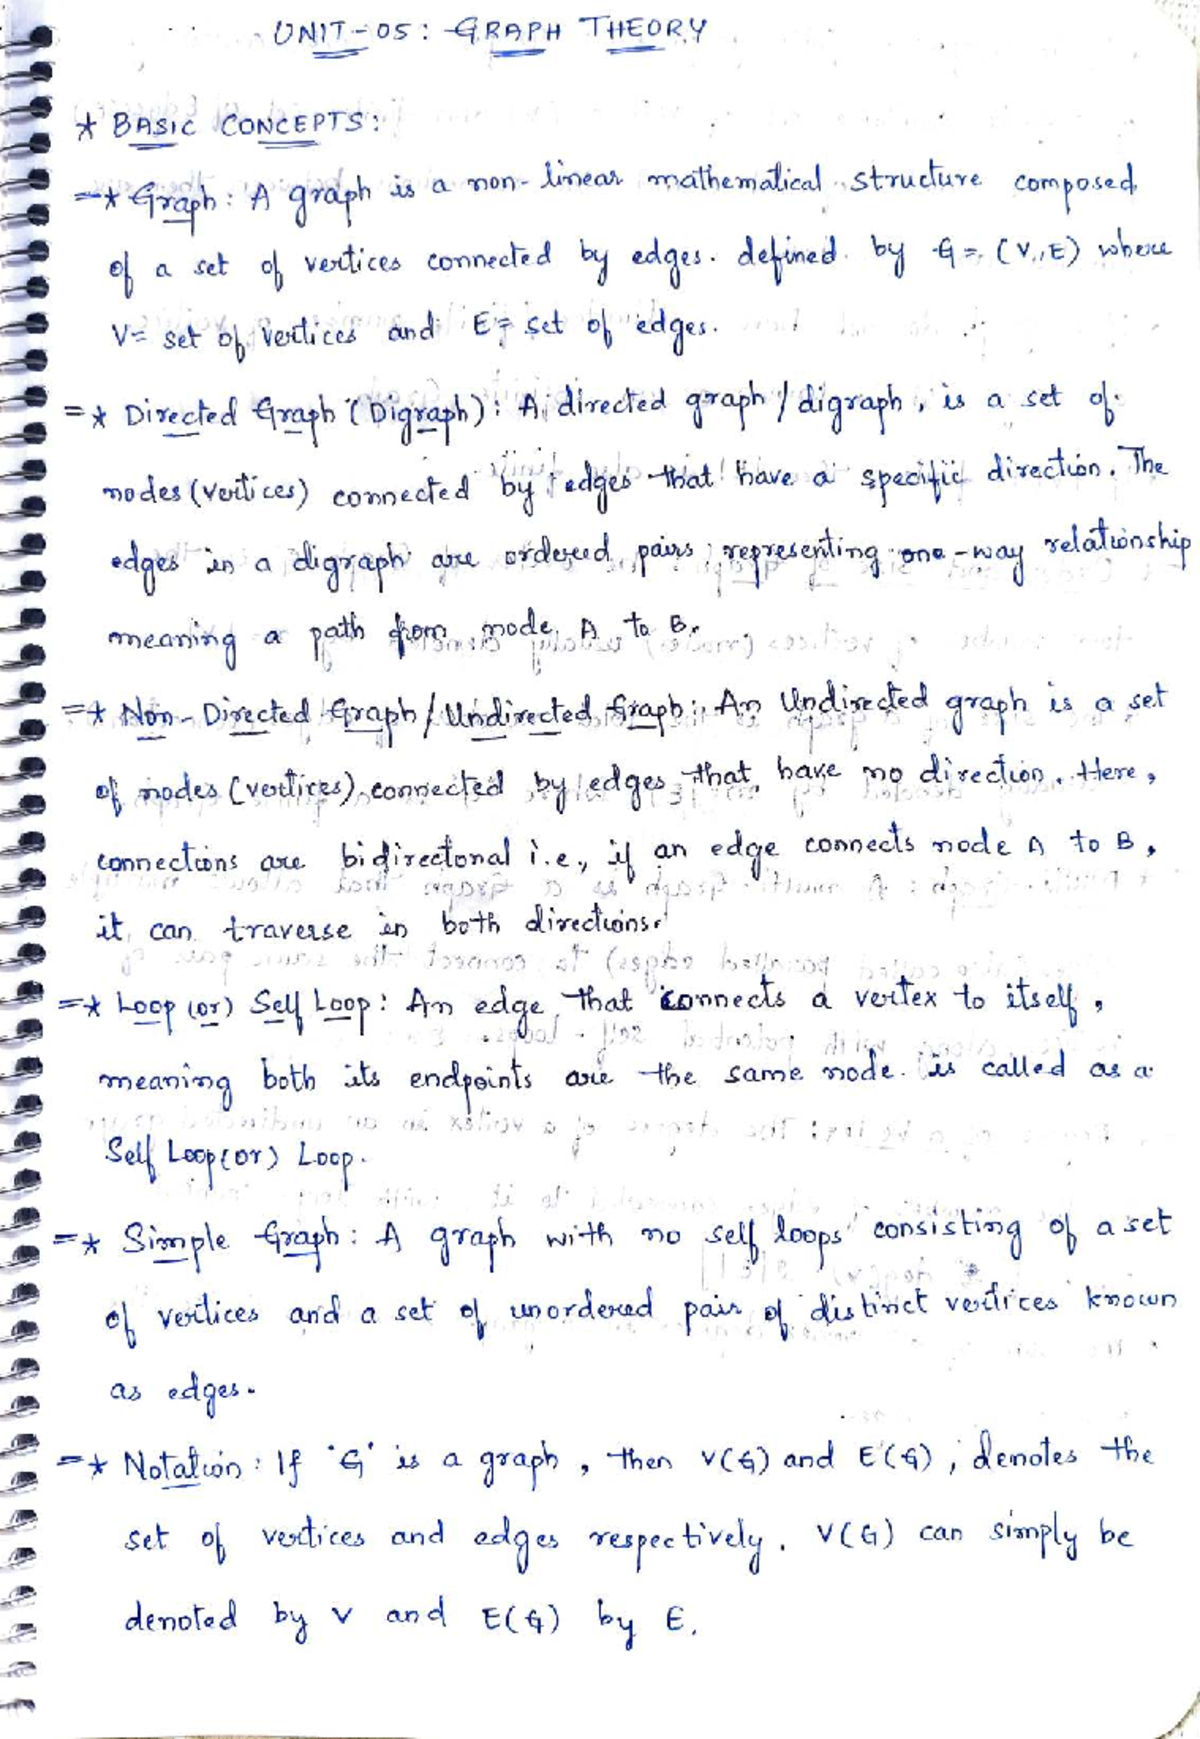 UNIT-05: GRAPH THEORY
* BASIC CONCEPTS:
=* Graph: A graph is a non-linear mathematical structure composed
of a set of vertices connected by edges. defined by G = (V,E) where
V= set of vertices and E= set of edges.
=* Directed Graph (Digraph): A directed graph/digraph, is a set of
nodes (vertices) connected by edges that have a specific direction. The
edges in a digraph are ordered pairs representing one-way relationship
meaning a path from node A to B.
=* Non-Directed Graph/Undirected Graph: An Undirected graph is a set
of nodes (vertices) connected by edges that have no direction. Here,
connections are bidirectonal i.e., if an edge connects node A to B,
it can traverse in both directions.
=* Loop (or) Self Loop: An edge that connects a vertex to itself,
meaning both its endpoints are the same node. is called as a
Self Loop(or) Loop.
=* Simple Graph: A graph with no self loops consisting of a set
of vertices and a set of unordered pair of distinct vertices known
as edges.
=* Notation: If 'G' is a graph, then V(G) and E(G), denotes the
set of vertices and edges respectively. V(G) can simply be
denoted by V and E(G) by E.